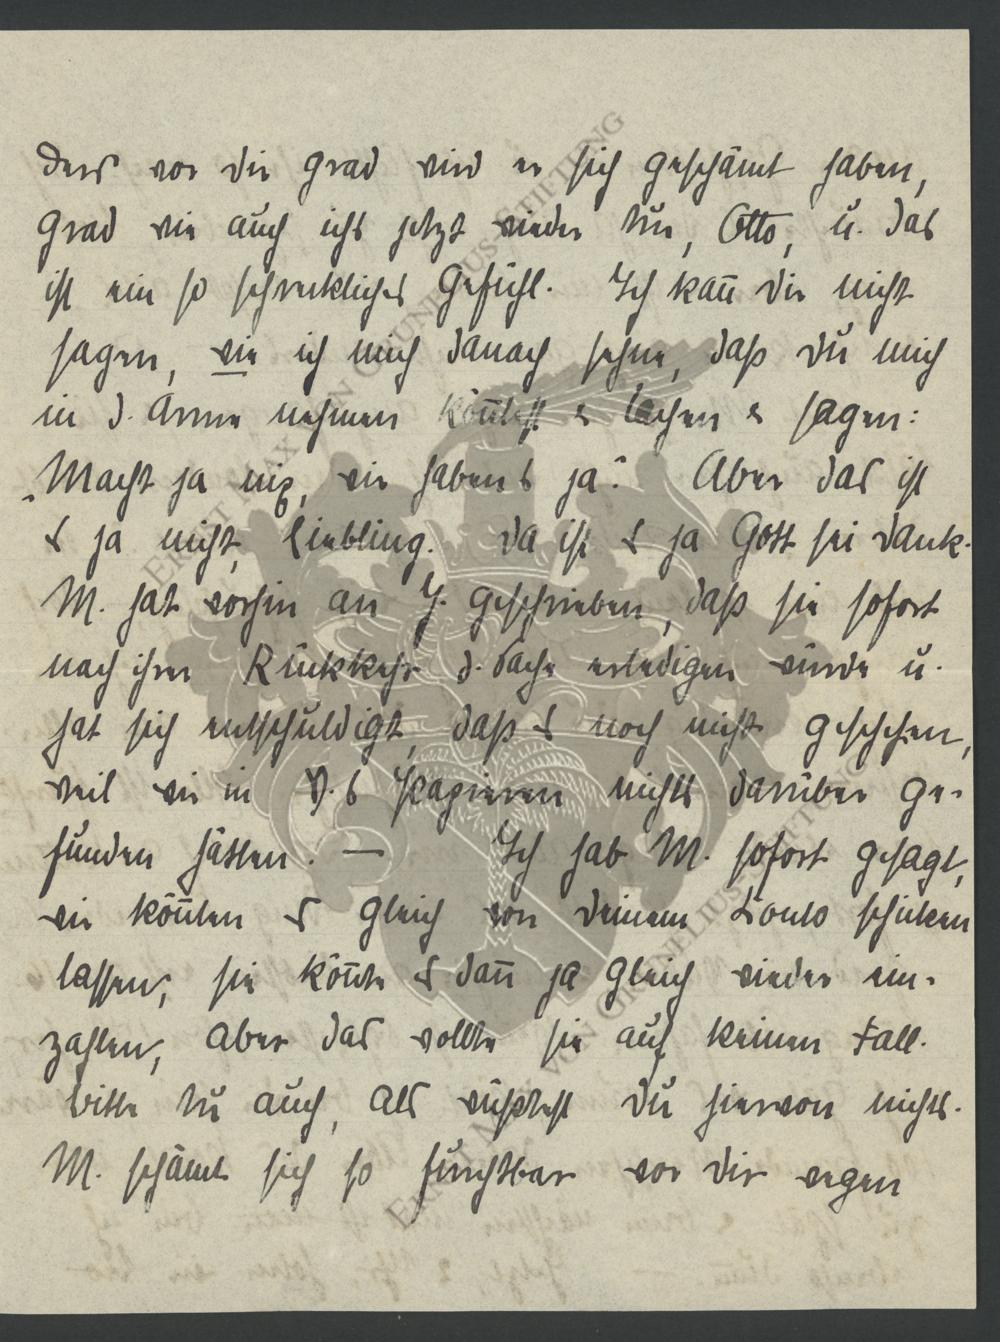 ders vor dir grad wird er sich geschämt haben,
grad wie auch ichs jetzt wieder tue, Otto, u. das
ist ein so schreckliches Gefühl. Ich kan̄ dir nicht
sagen, wie ich mich danach sehne, daß du mich
in d. Arme nehmen kön̄test & lachen & sagen:
„Macht ja nix, wir habens ja". Aber das ist
es ja nicht, Liebling. Da ist es ja Gott sei dank.
M. hat vorhin an Y. geschrieben, daß sie sofort
nach ihrer Rückkehr d. Sache erledigen würde u.
hat sich entschuldigt, daß es noch nicht geschehen,
weil wir in V.s Papieren nichts darüber ge-
funden hätten. — Ich hab M. sofort gesagt,
wir kön̄ten es gleich von deinem Konto schicken
lassen, sie kön̄te es dan̄ ja gleich wieder ein-
zahlen, aber das wollte sie auf keinen Fall.
bitte tu auch, als wüßtest du hiervon nichts.
M. schämt sich so furchtbar vor dir wegen
ERNST MAX VON GRUNELIUS-STIFTUNG
ERNST MAX VON GRUNELIUS-STIFTUNG